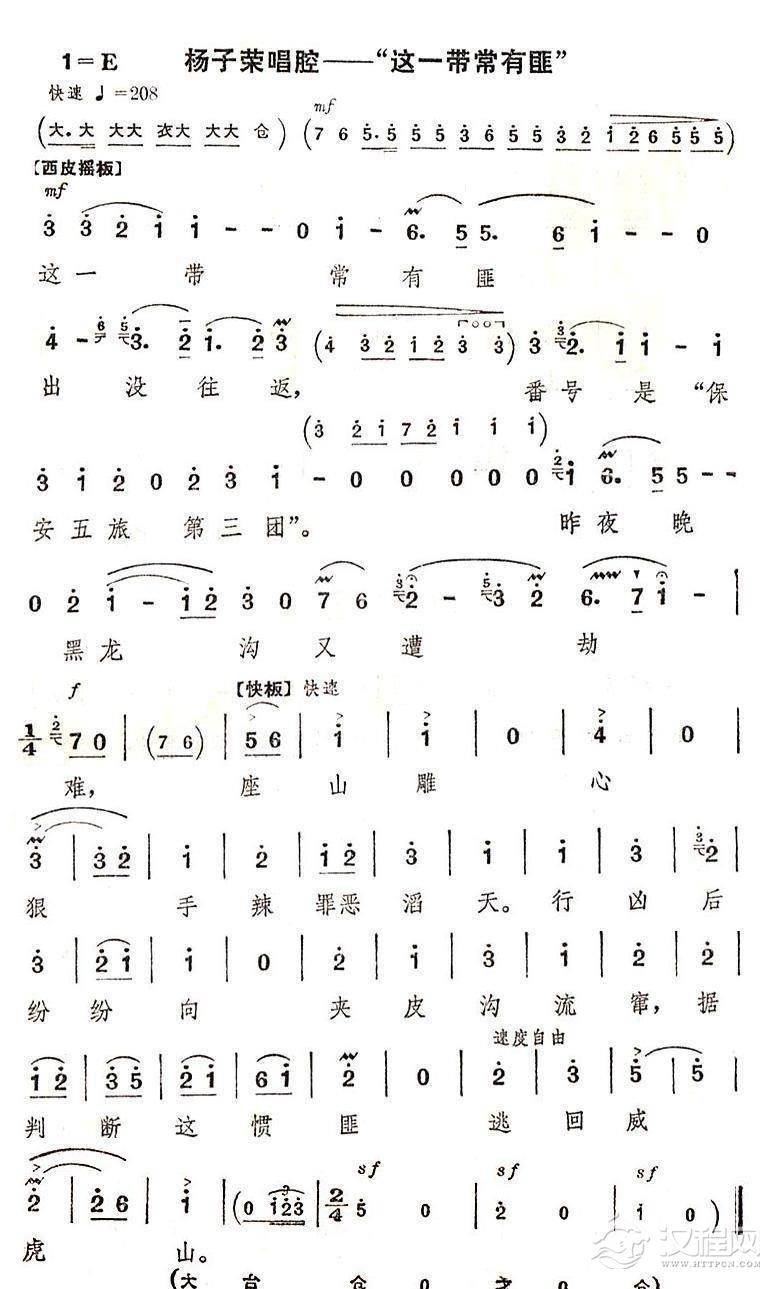 1=E 杨子荣唱腔——“这一带常有匪”
快速 ♩=208
mf
(大.大 大大 衣大 大大 仓) (7 6 5. 5 5 5 3 6 5 5 3 2 1 2 6 5 5 5)
【西皮摇板】
mf
3 3 2 1 1 - - 0 1 - 6. 5 5. 6 1 - - 0
这一 带 常 有 匪
4 - 6 5 3. 2 1. 2 3 (4 3 2 1 2 3 3) 3 3 2. 1 1 - 1
出 没 往 返, 番 号 是 “保
(3 2 1 7 2 1 1 1)
3 1 2 0 2 3 1 - 0 0 0 0 0 2 1 6. 5 5 - -
安 五 旅 第 三 团”。 昨 夜 晚
0 2 1 - 1 2 3 0 7 6 3 2 - 5 3 2 6. 7 1 - |
黑 龙 沟 又 遭 劫
f 【快板】快速
1/4 2 7 0 | (7 6) | 5 6 | 1 | 1 | 0 | 4 | 0 |
难, 座 山 雕 心
3 | 3 2 | 1 | 2 | 1 2 | 3 | 1 | 1 | 3 | 3 2 |
狠 手 辣 罪恶 滔 天。 行 凶 后
3 | 2 1 | 1 | 0 | 2 | 1 | 3 | 1 | 2 | 1 |
纷 纷 向 夹 皮 沟 流 窜, 据
速度自由
1 2 | 3 5 | 2 1 | 6 1 | 2 | 0 | 2 | 3 | 5 | 5 |
判 断 这 惯 匪 逃 回 威
sf sf sf
2 | 2 6 | 1 | (0 1 2 3 | 2/4 5 0 | 0 0 | 1 0) ‖
虎 山。
(大 台 仓 0 才 0 仓)
汉程网
HTTPCN.COM